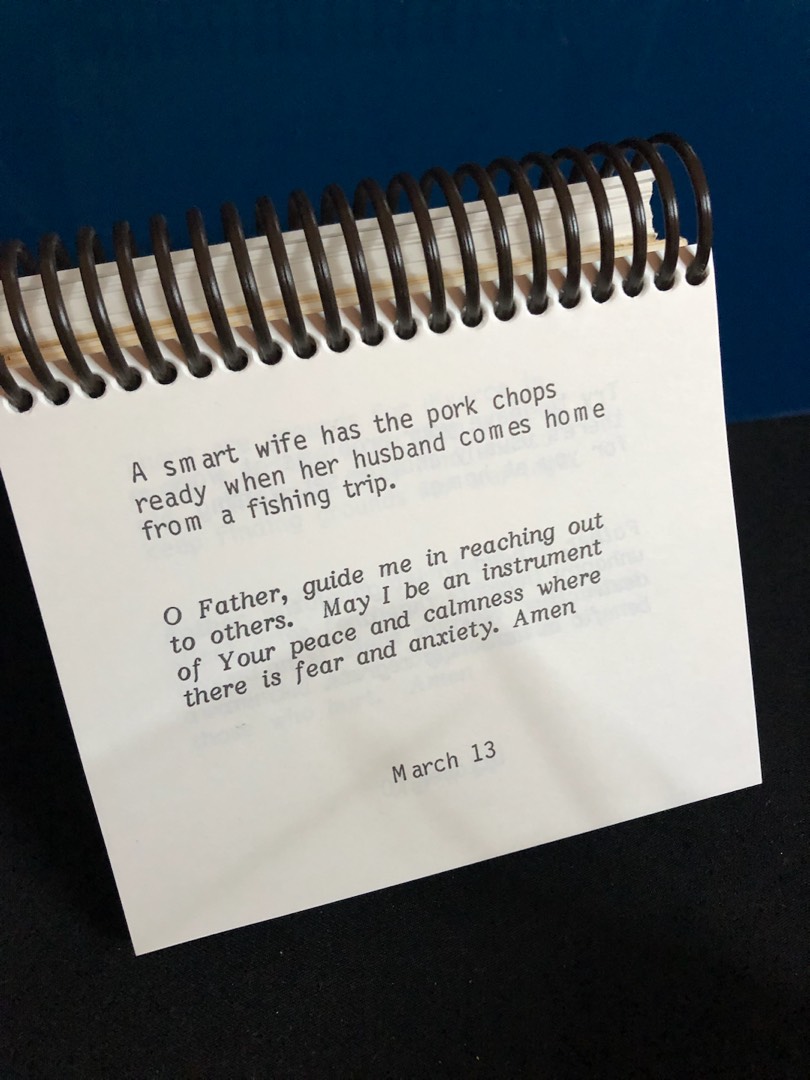 A smart wife has the pork chops
ready when her husband comes home
from a fishing trip.
O Father, guide me in reaching out
to others. May I be an instrument
of Your peace and calmness where
there is fear and anxiety. Amen
March 13